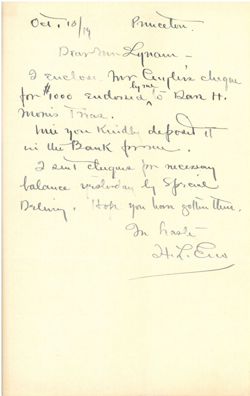 Oct. 10/19 Princeton.
Dear Mr Lynam –
I enclose Mr cheque
by me
for $1000 endorsed to Dan H.
Morris Treas.
Will you Kindly deposit it
in the Bank for me.
I sent cheques for necessary
balance yesterday by Special
Delivery. Hope you have gotten them.
In haste
H. L.